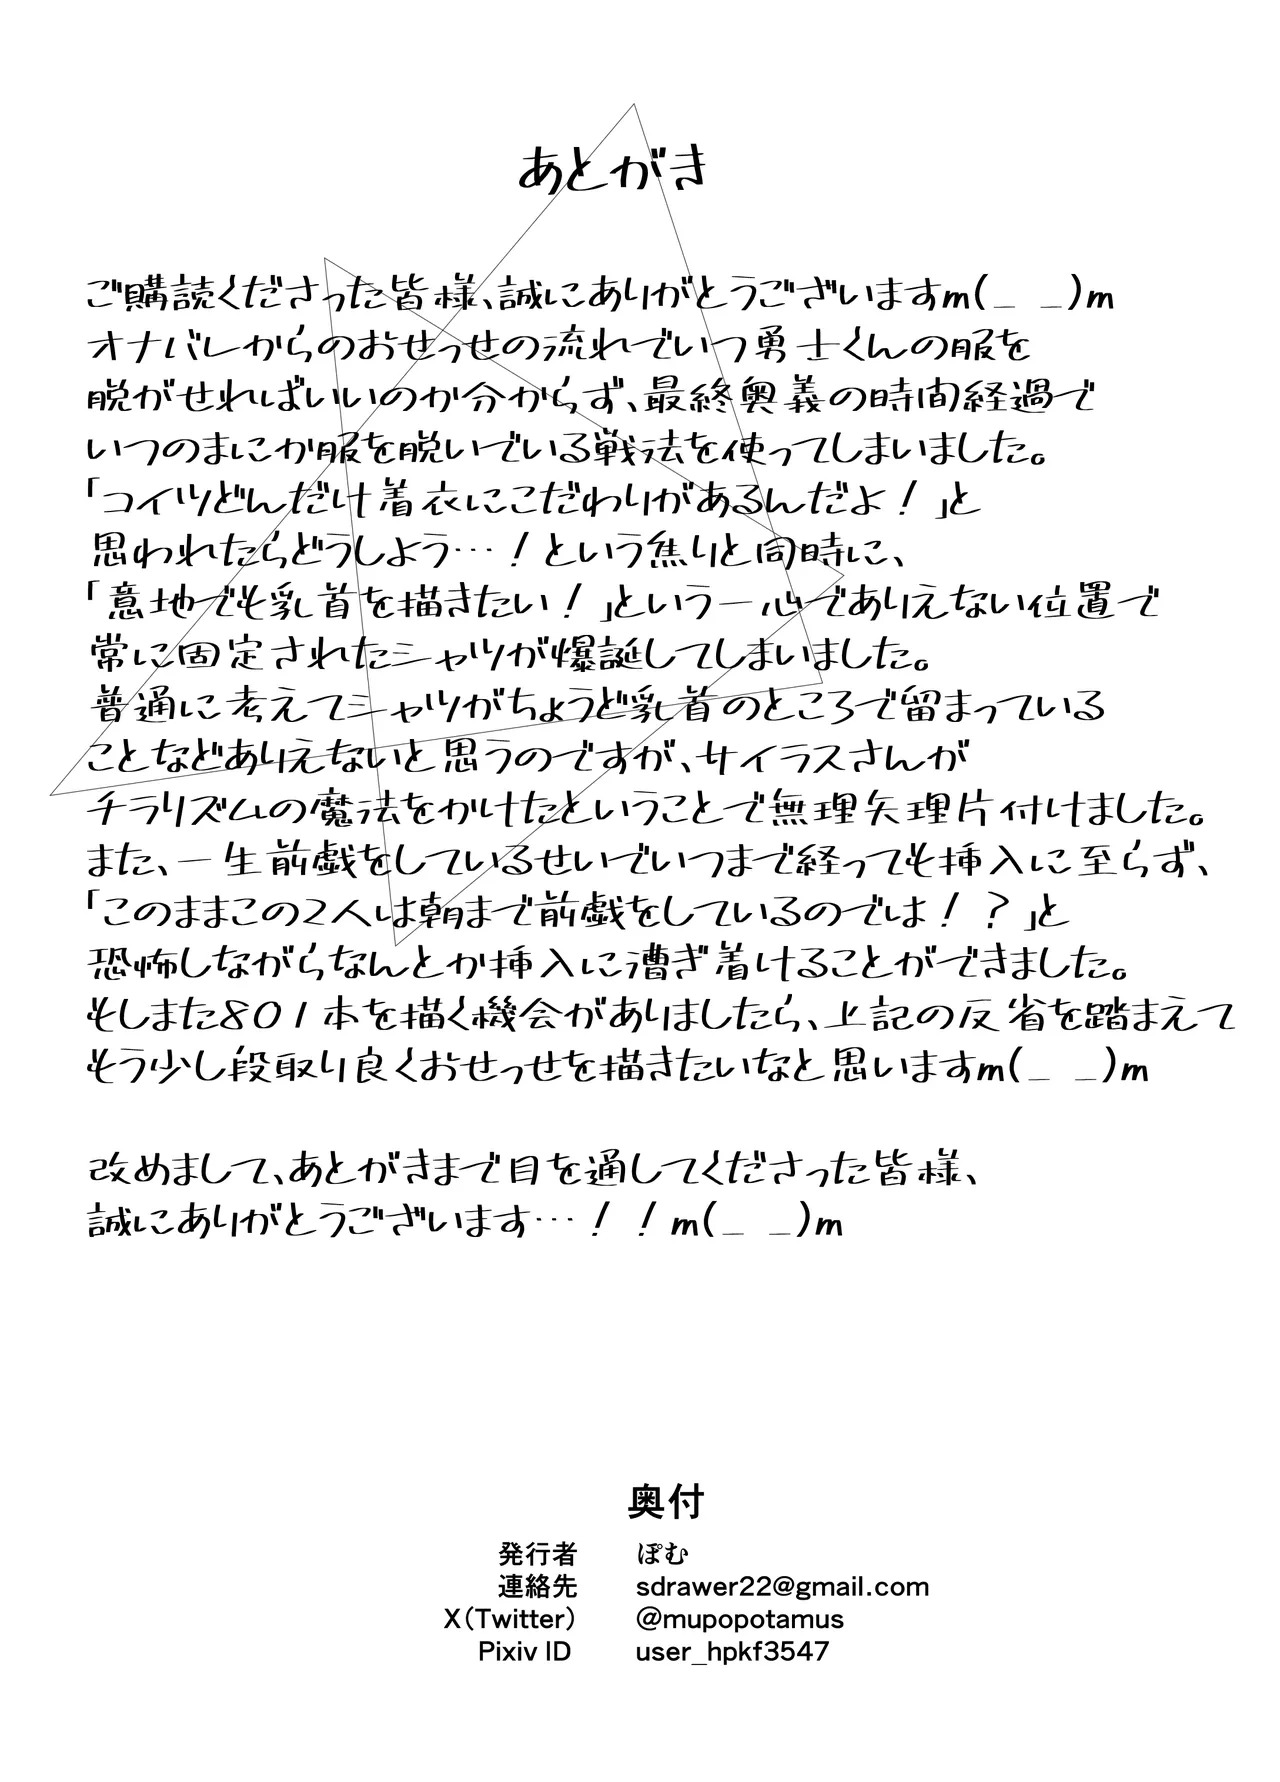 あとがき
ご購読くださった皆様、誠にありがとうございますm(_ _)m
オナバレからのおせっせの流れでいつ勇士くんの服を
脱がせればいいのか分からず、最終奥義の時間経過で
いつのまにか服を脱いでいる戦法を使ってしまいました。
「コイツどんだけ着衣にこだわりがあるんだよ！」と
思われたらどうしよう…！という焦りと同時に、
「意地でも乳首を描きたい！」という一心でありえない位置で
常に固定されたシャツが爆誕してしまいました。
普通に考えてシャツがちょうど乳首のところで留まっている
ことなどありえないと思うのですが、サイラスさんが
チラリズムの魔法をかけたということで無理矢理片付けました。
また、一生前戯をしているせいでいつまで経っても挿入に至らず、
「このままこの2人は朝まで前戯をしているのでは！？」と
恐怖しながらなんとか挿入に漕ぎ着けることができました。
もしまた801本を描く機会がありましたら、上記の反省を踏まえて
もう少し段取り良くおせっせを描きたいなと思いますm(_ _)m
改めまして、あとがきまで目を通してくださった皆様、
誠にありがとうございます…！！m(_ _)m
奥付
発行者 ぽむ
連絡先 sdrawer22@gmail.com
X(Twitter) @mupopotamus
Pixiv ID user_hpkf3547